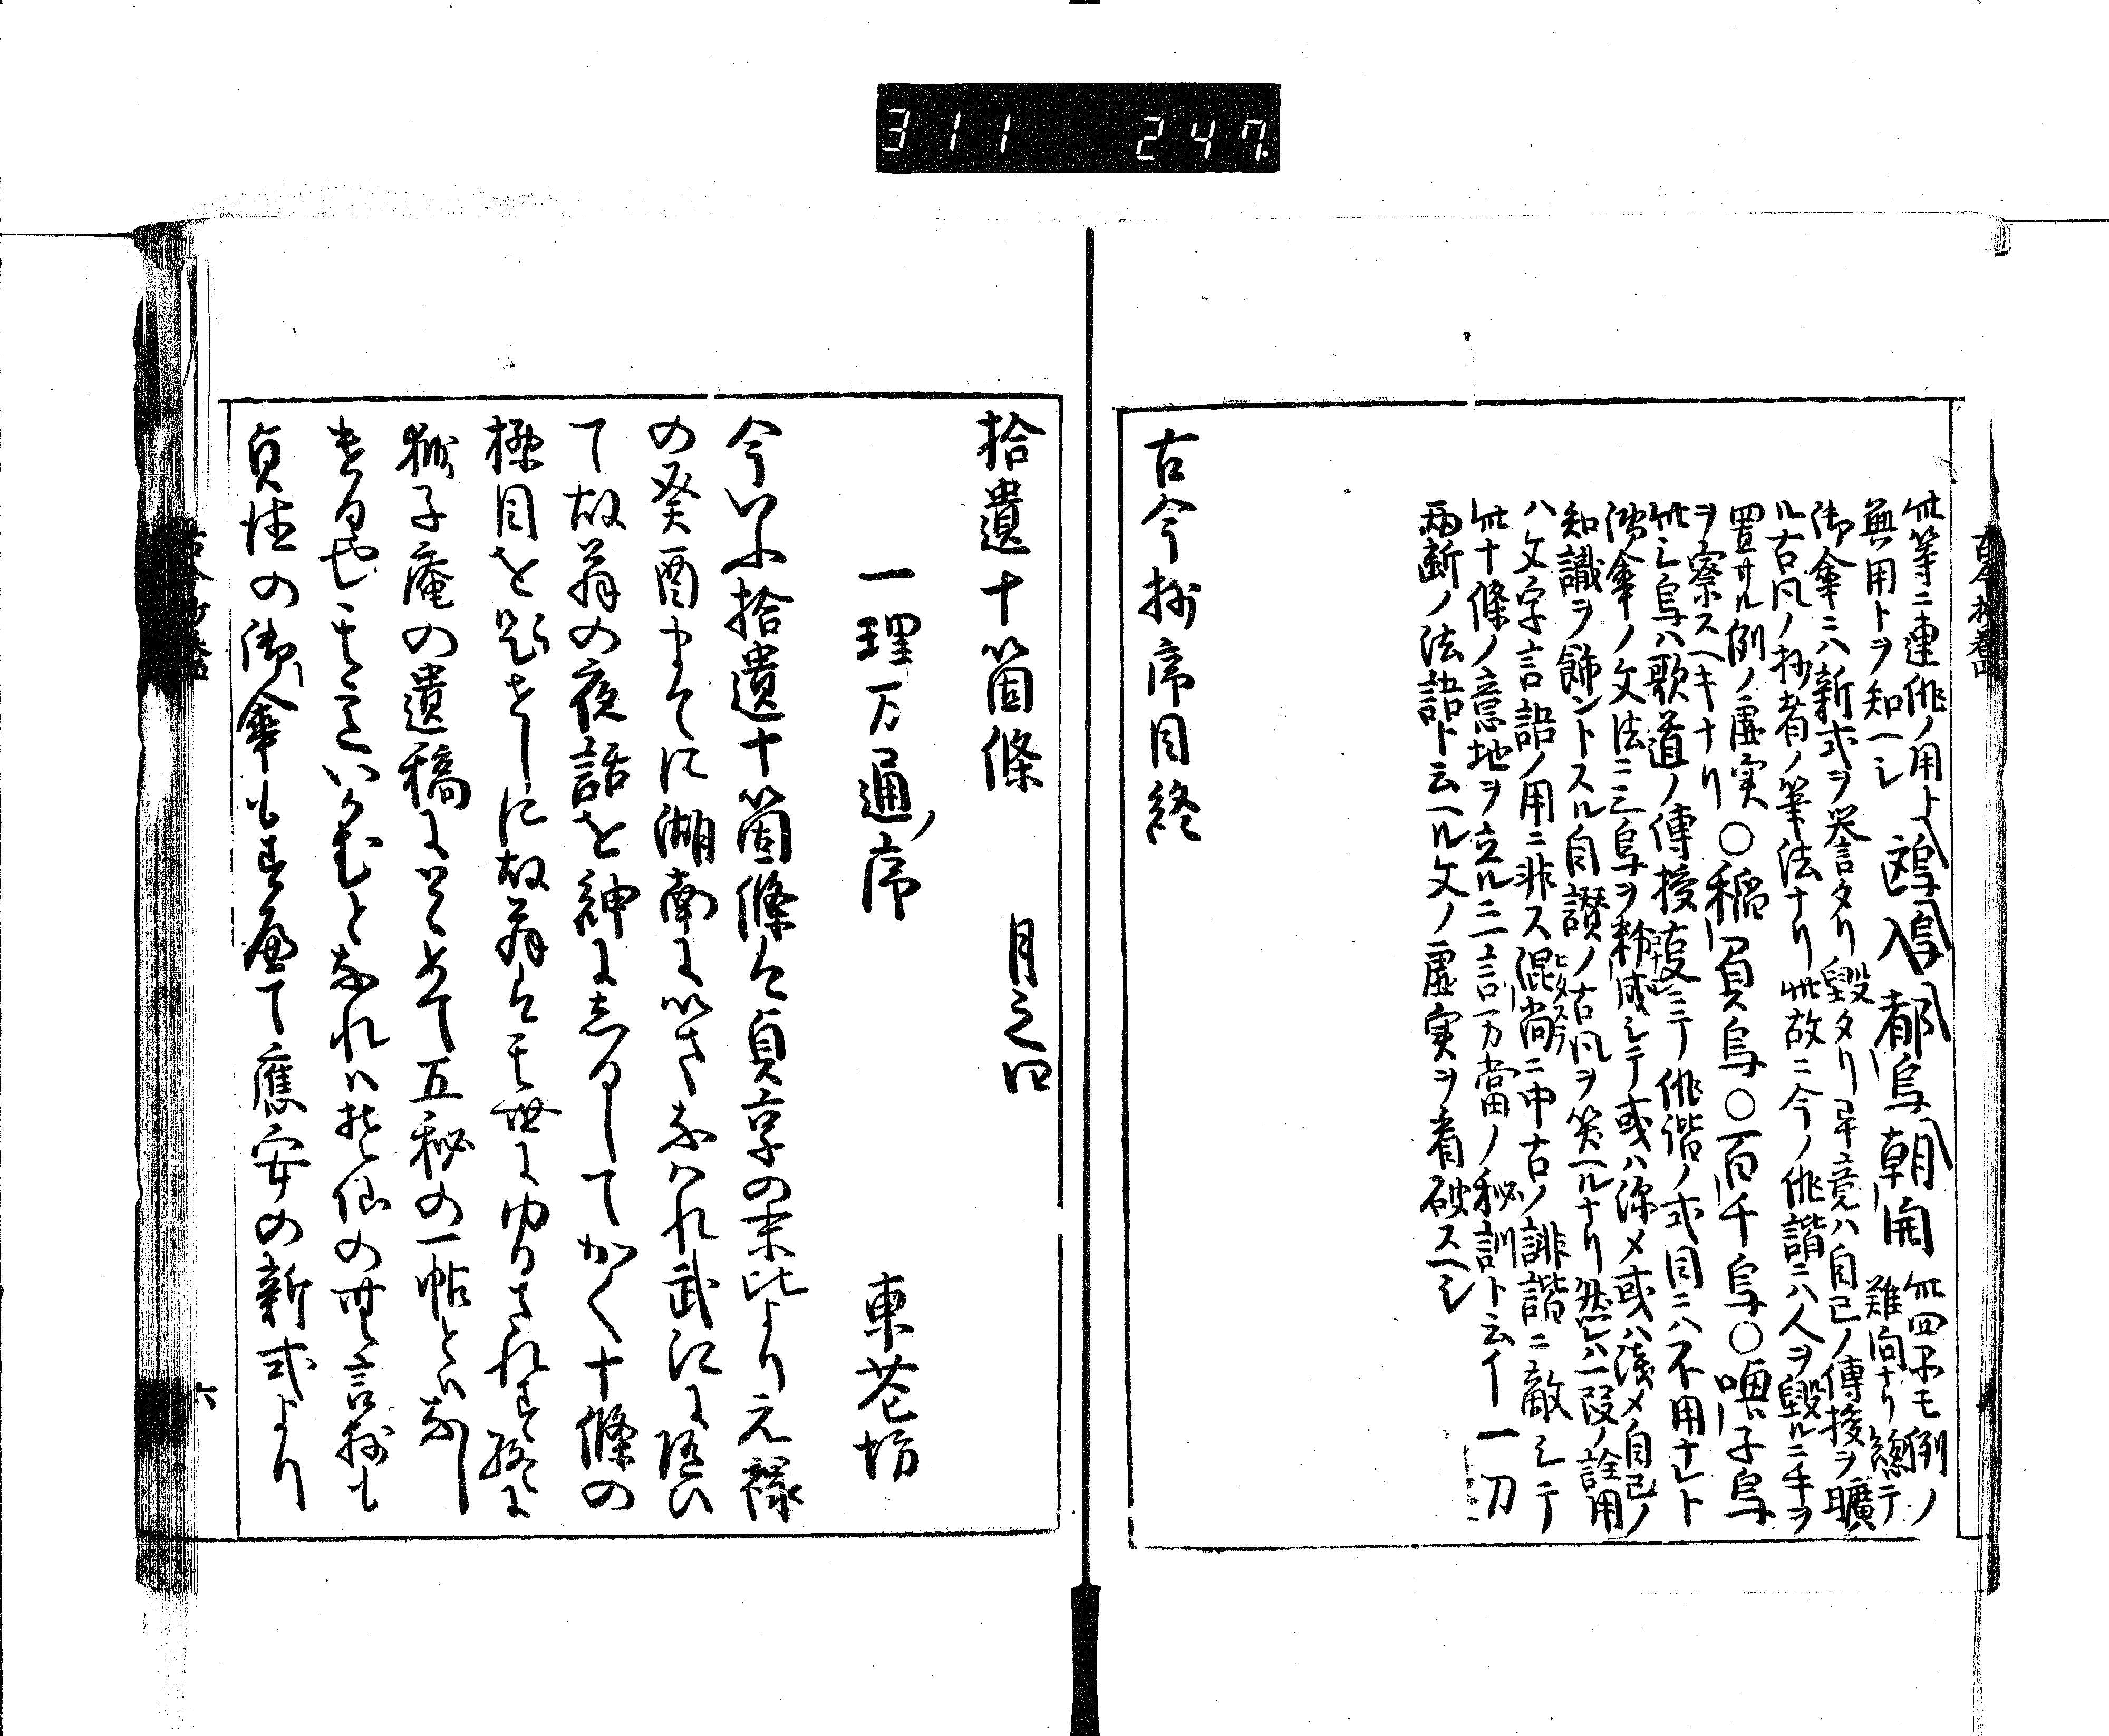 311 247
此等ニ連俳ノ用ト 鴎 入 都鳥 朝 此四品モ例ノ
無用トヲ知ヘシ 難向ナリ總テ
御傘ニハ新式ヲ咎言タリ毀タリ畢竟ハ自己ノ傳授ヲ曠
ル古凡ノ抄者ノ筆法ナリ此故ニ今ノ俳諧ニハ人ヲ毀ルニ手ヲ
置サル例ノ虚実○稲負鳥○百千鳥○喚子鳥
ヲ察スヘキナリ
此三鳥ハ歌道ノ傳授 ニテ俳諧ノ式目ニハ不用ナレト
御傘ノ文法ニ三鳥ヲ シテ或ハ深メ或ハ淺メ自己ノ
知識ヲ飾ントスル自讃ノ古凡ヲ笑ヘルナリ然レハ一段ノ詮用
ハ文字言語ノ用ニ非ス混 ニ中古ノ誹諧ニ敵シテ
此十條ノ意地ヲ立ル二言万當ノ秘訓ト云ヘ 一刀
両断ノ法語ト云ヘル文ノ虚実ヲ看破スヘシ
古今抄序目終
拾遺十箇條 月之口
一理万通ノ序 東花坊
今いふ拾遺十箇條は貞享の末比より元禄
の癸酉まてに湖南にいさなはれ武江に随ひ
て故翁の夜話を紳にしるしてかく十條の
標目を題せしに故翁は其世にゆるされす終に
獅子庵の遺稿にとゝめて五秘の一帖とはなし
ける也其こといかむとなれは歌仙の無言抄も
貞徳の御傘もすへて應安の新式より
六